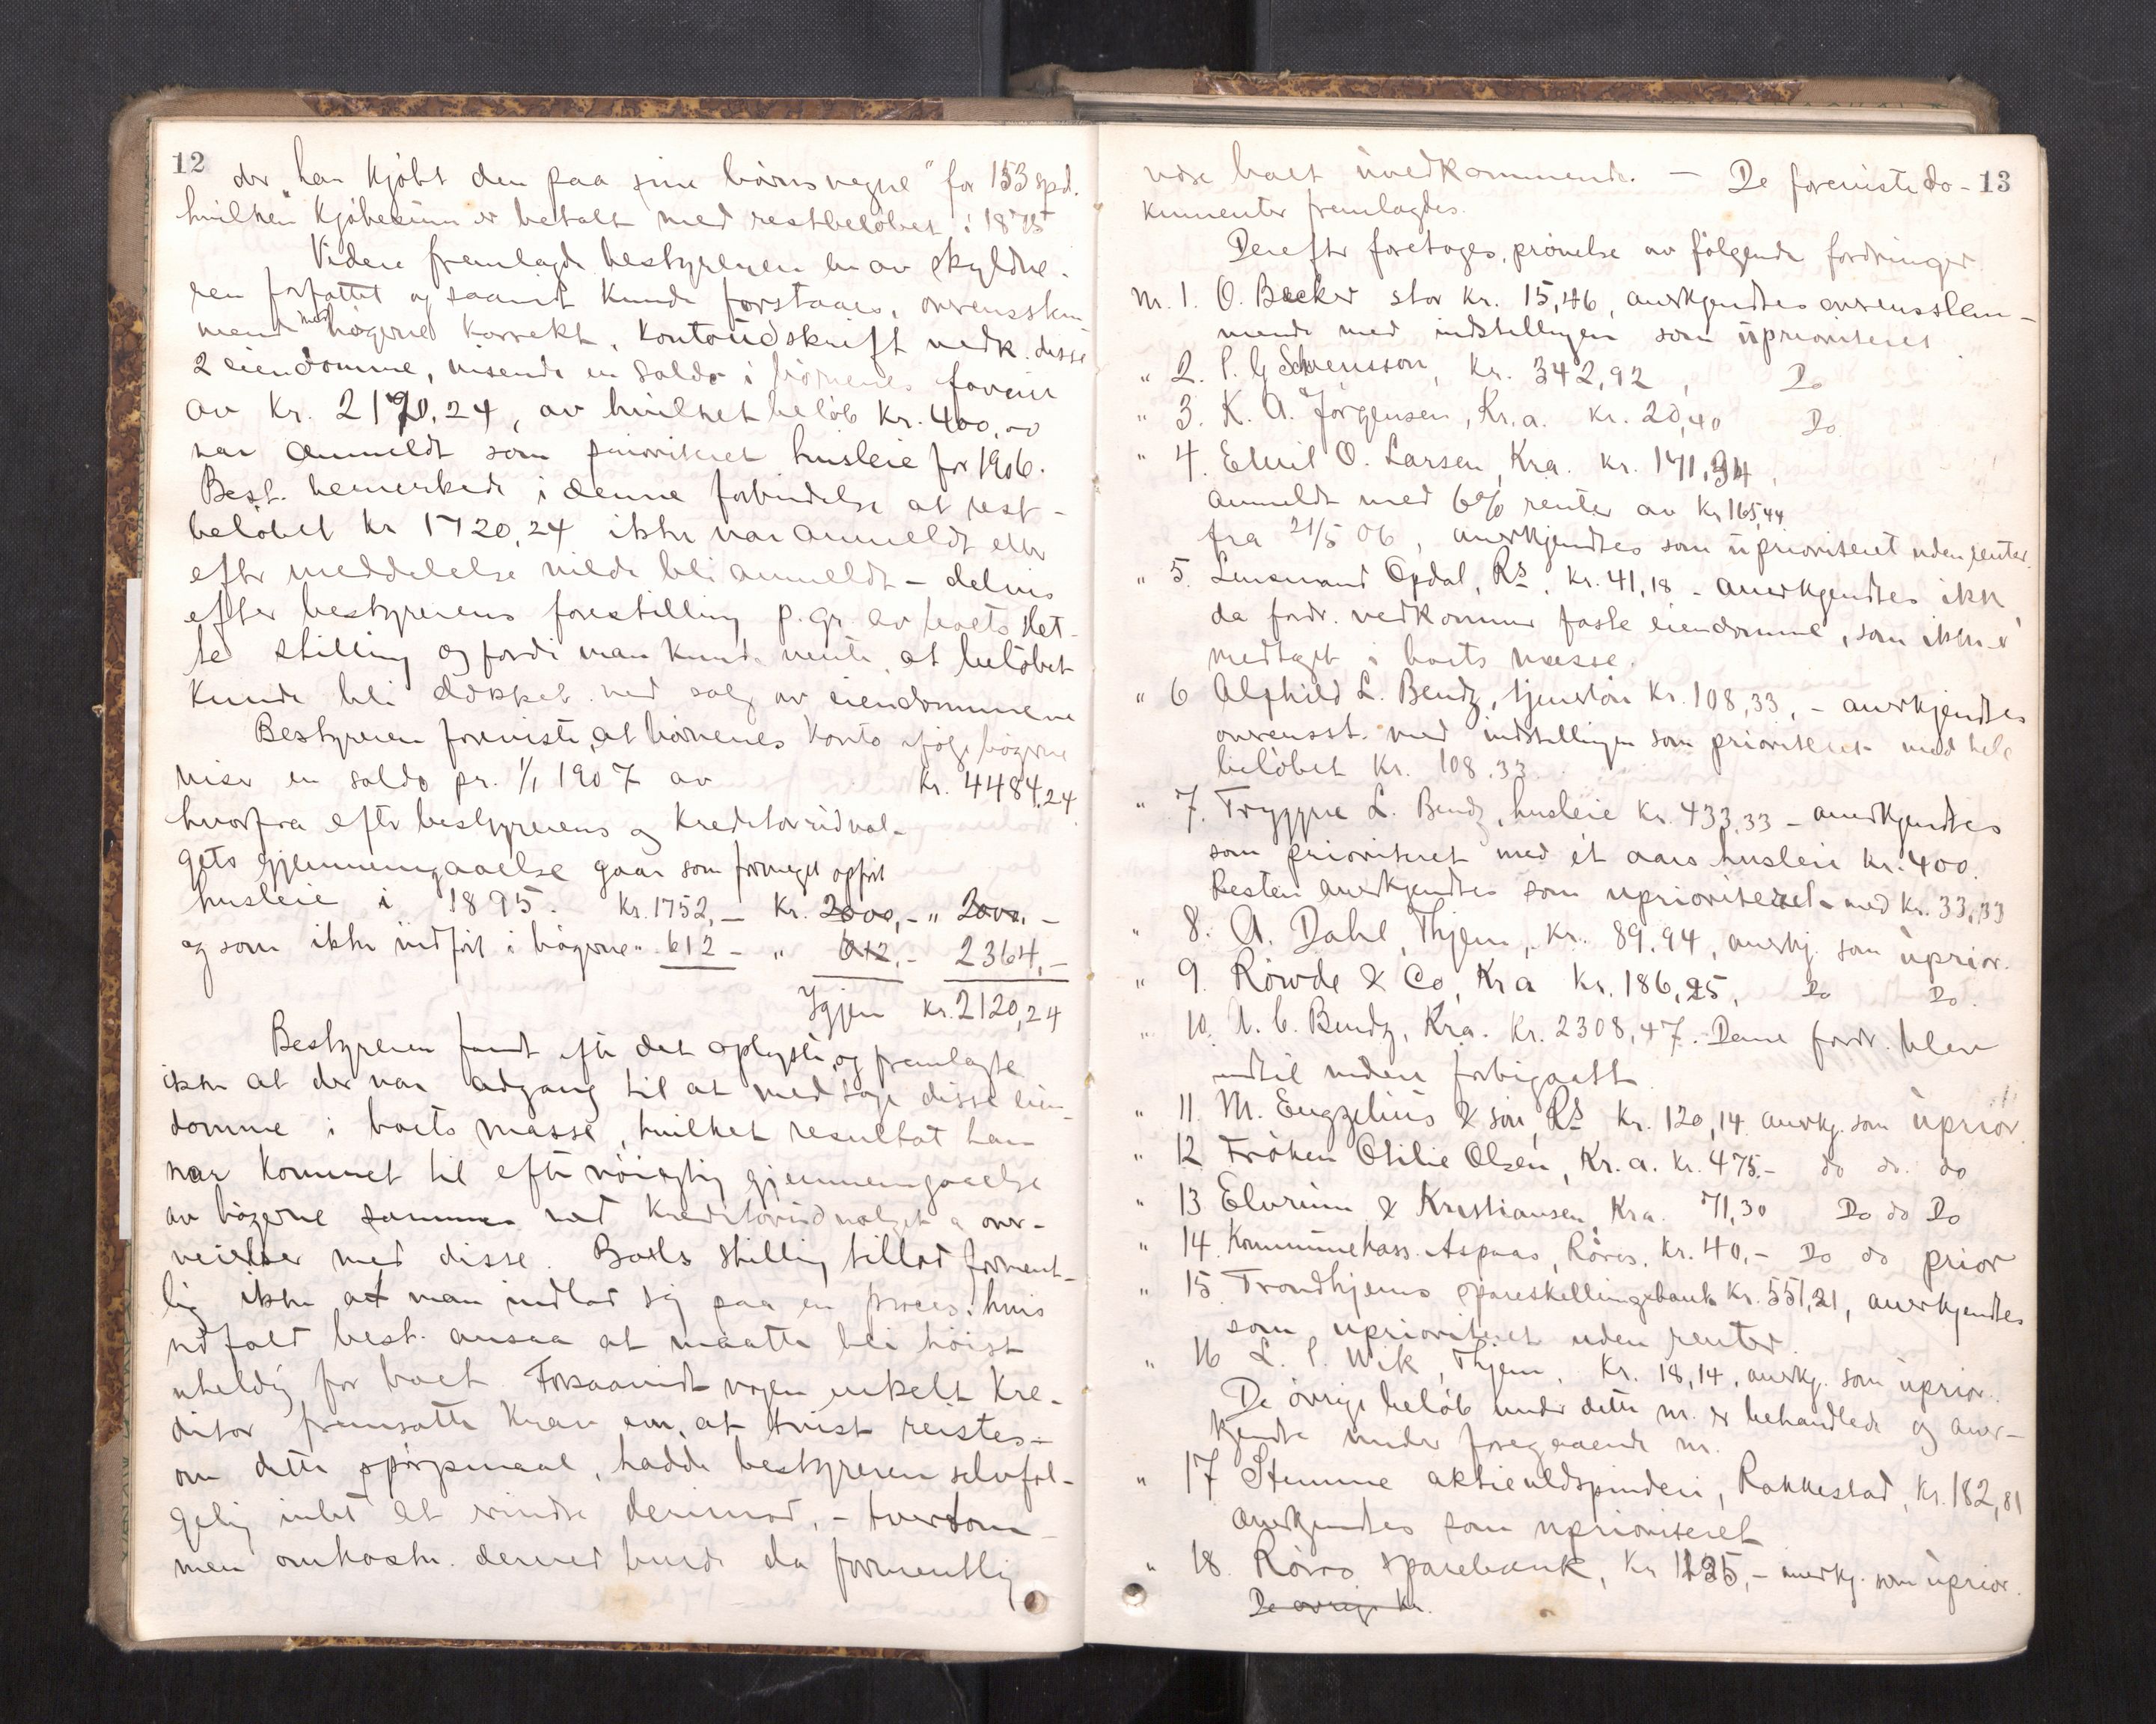 12
der "har kjöbt den paa sine börns vegne" for 153 spd.
hvilken kjöbesum er betalt med restbelöbet i 1875
Videre fremlagde bestyreren en av skyldne-
ren forfattet og saavidt kunde forstaaes, overensstem-
mende med bögerne korrekt, kontoudskrift vedk. disse
2 eiendomme, visende en saldo i börnenes faveur
av kr. 2120.24, av hvilket belöb kr. 400,00
var anmeldt som prioriteret husleie for 1906.
Best. bemerkede i denne forbindelse at rest-
belöbet kr 1720,24 ikke var anmeldt eller
efter meddelelse vilde bli anmeldt - delvis
efter bestyrerens forestilling p. gr. av boets slet-
te stilling og fordi man kunde vente, at belöbet
kunde bli dækket ved salg av eiendommene
Bestyreren foreviste, at börnenes konto ifölge bögerne
viser en saldo pr. 1/1 1907 av kr. 4484.24
hvorfra efter bestyrerens og kreditorudval-
gets gjennemgaaelse gaar som formeget opfört
husleie i 1895. kr. 1752,- kr. 2000,- " 2000.-
og som ikke indfört i bögerne " 612 - " 612.- 2364,-
Igjen kr. 2120,24
Bestyreren fandt efter det oplyste og fremlagte
ikke at der var adgang til at medtage disse eien-
domme i boets masse, hvilket resultat han
var kommet til efter nöiagtig gjennemgaaelse
av bögerne sammen med kreditorudvalget og over-
veielser med disse. Boets stilling tillod forment-
lig ikke at man indlod sig paa en proces. hvis
udfald best. ansaa at maatte bli höist
uheldig for boet. Forsaavidt nogen enkelt kre-
ditor fremsatte krav om, at tvist reistes
om dette spörgsmaal, hadde bestyreren selvföl-
gelig intet at erindre derimod, - tvertom -
men omkostn. derved burde da formentlig
13
være boet uvedkommende. - De foreviste do-
kumenter fremlagdes.
Derefter foretoges prövelse av fölgende fordringer
nr. 1. O. Becker stor kr. 15,46, anerkjendtes overensstem-
mende med indstillingen som uprioriteret.
" 2. P. G Schwensson, kr. 342,92, Do
" 3. K. A. Jörgensen, Kr.a. kr. 20,40 Do.
" 4. Emil O. Larsen, Kra. kr. 171,34,
anmeldt med 6% renter av kr 165,44
fra 21/5 06, anerkjendtes som uprioriteret uden renter.
" 5. Lensmand Opdal, Rs. kr. 41,18 - anerkjendtes ikke
da fordr. vedkommer faste eiendomme, som ikke er
medtaget i boets masse.
" 6 Alfhild L. Bendz, tjenerlön kr. 108,33, - anerkjendtes
overensst. med indstillingen som prioriteret med hele
belöbet kr. 108.33
" 7. Tryggve L. Bendz, husleie kr. 433,33 - anerkjendtes
som prioriteret med ét aars husleie kr. 400.
Resten anerkjendtes som uprioriteret med kr. 33,33
" 8. A. Dahl, Thjem, kr. 89.94, anerkj. som uprior.
" 9. Röwde & Co, Kra kr. 186,25, Do Do.
" 10. A. C. Bendz, Kra. kr. 2308,47. Denne fordr. blev
indtil videre forbigaatt.
" 11. M. Engzelius & sön, Rs kr. 120,14 anerkj. som uprior.
" 12 Fröken Otilie Olsen, Kr.a. kr. 475.- do do. do
" 13 Elvrum & Kristiansen, Kra. 71,30 Do do Do
" 14. Kommunekass. Aspaas, Röros, kr. 40,- Do do prior
" 15. Trondhjems spareskillingsbank kr. 551,21, anerkjendtes
som uprioriteret uden renter.
" 16 L. P. Wik, Thjem, kr. 18,14, anerkj. som uprior.
De övrige belöb under dette nr. er behandlede og aner-
kjendte under foregaaende nr.
" 17 Stemme aktieuldspinderi, Rakkestad, kr. 182,81
anerkjendtes som uprioriteret
" 18. Röros sparebank, kr 1135,- anerkj. som uprior.
De övrige kr.